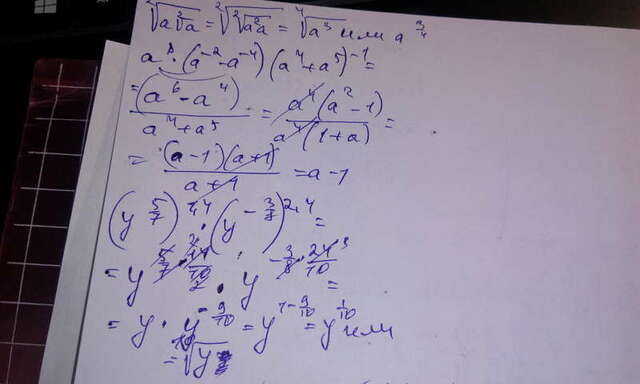 = ⁴√a³ или a^(3/4)
a⁸ · (a⁻² - a⁻⁴)(a⁴ + a⁵)⁻¹ =
= (a⁶ - a⁴)/(a⁴ + a⁵) = a⁴(a² - 1)/a⁴(1 + a) =
= (a - 1)(a + 1)/(a + 1) = a - 1
(y^(5/7))^1,4 · (y^(-3/8))^2,4 =
= y^(5/7 · 14/10) · y^(-3/8 · 24/10) =
= y · y^(-9/10) = y^(1 - 9/10) = y^(1/10) или
= ¹⁰√y